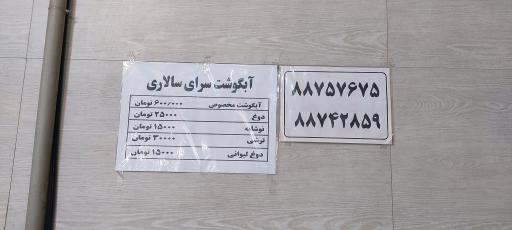 آبگوشت سرای سالاری
آبگوشت مخصوص ۶۰۰/۰۰۰ تومان
دوغ ۲۵۰۰۰ تومان
نوشابه ۱۵۰۰۰ تومان
ترشی ۳۰۰۰۰ تومان
دوغ لیوانی ۱۵۰۰۰ تومان
۸۸۷۵۷۶۷۵
۸۸۷۴۲۸۵۹